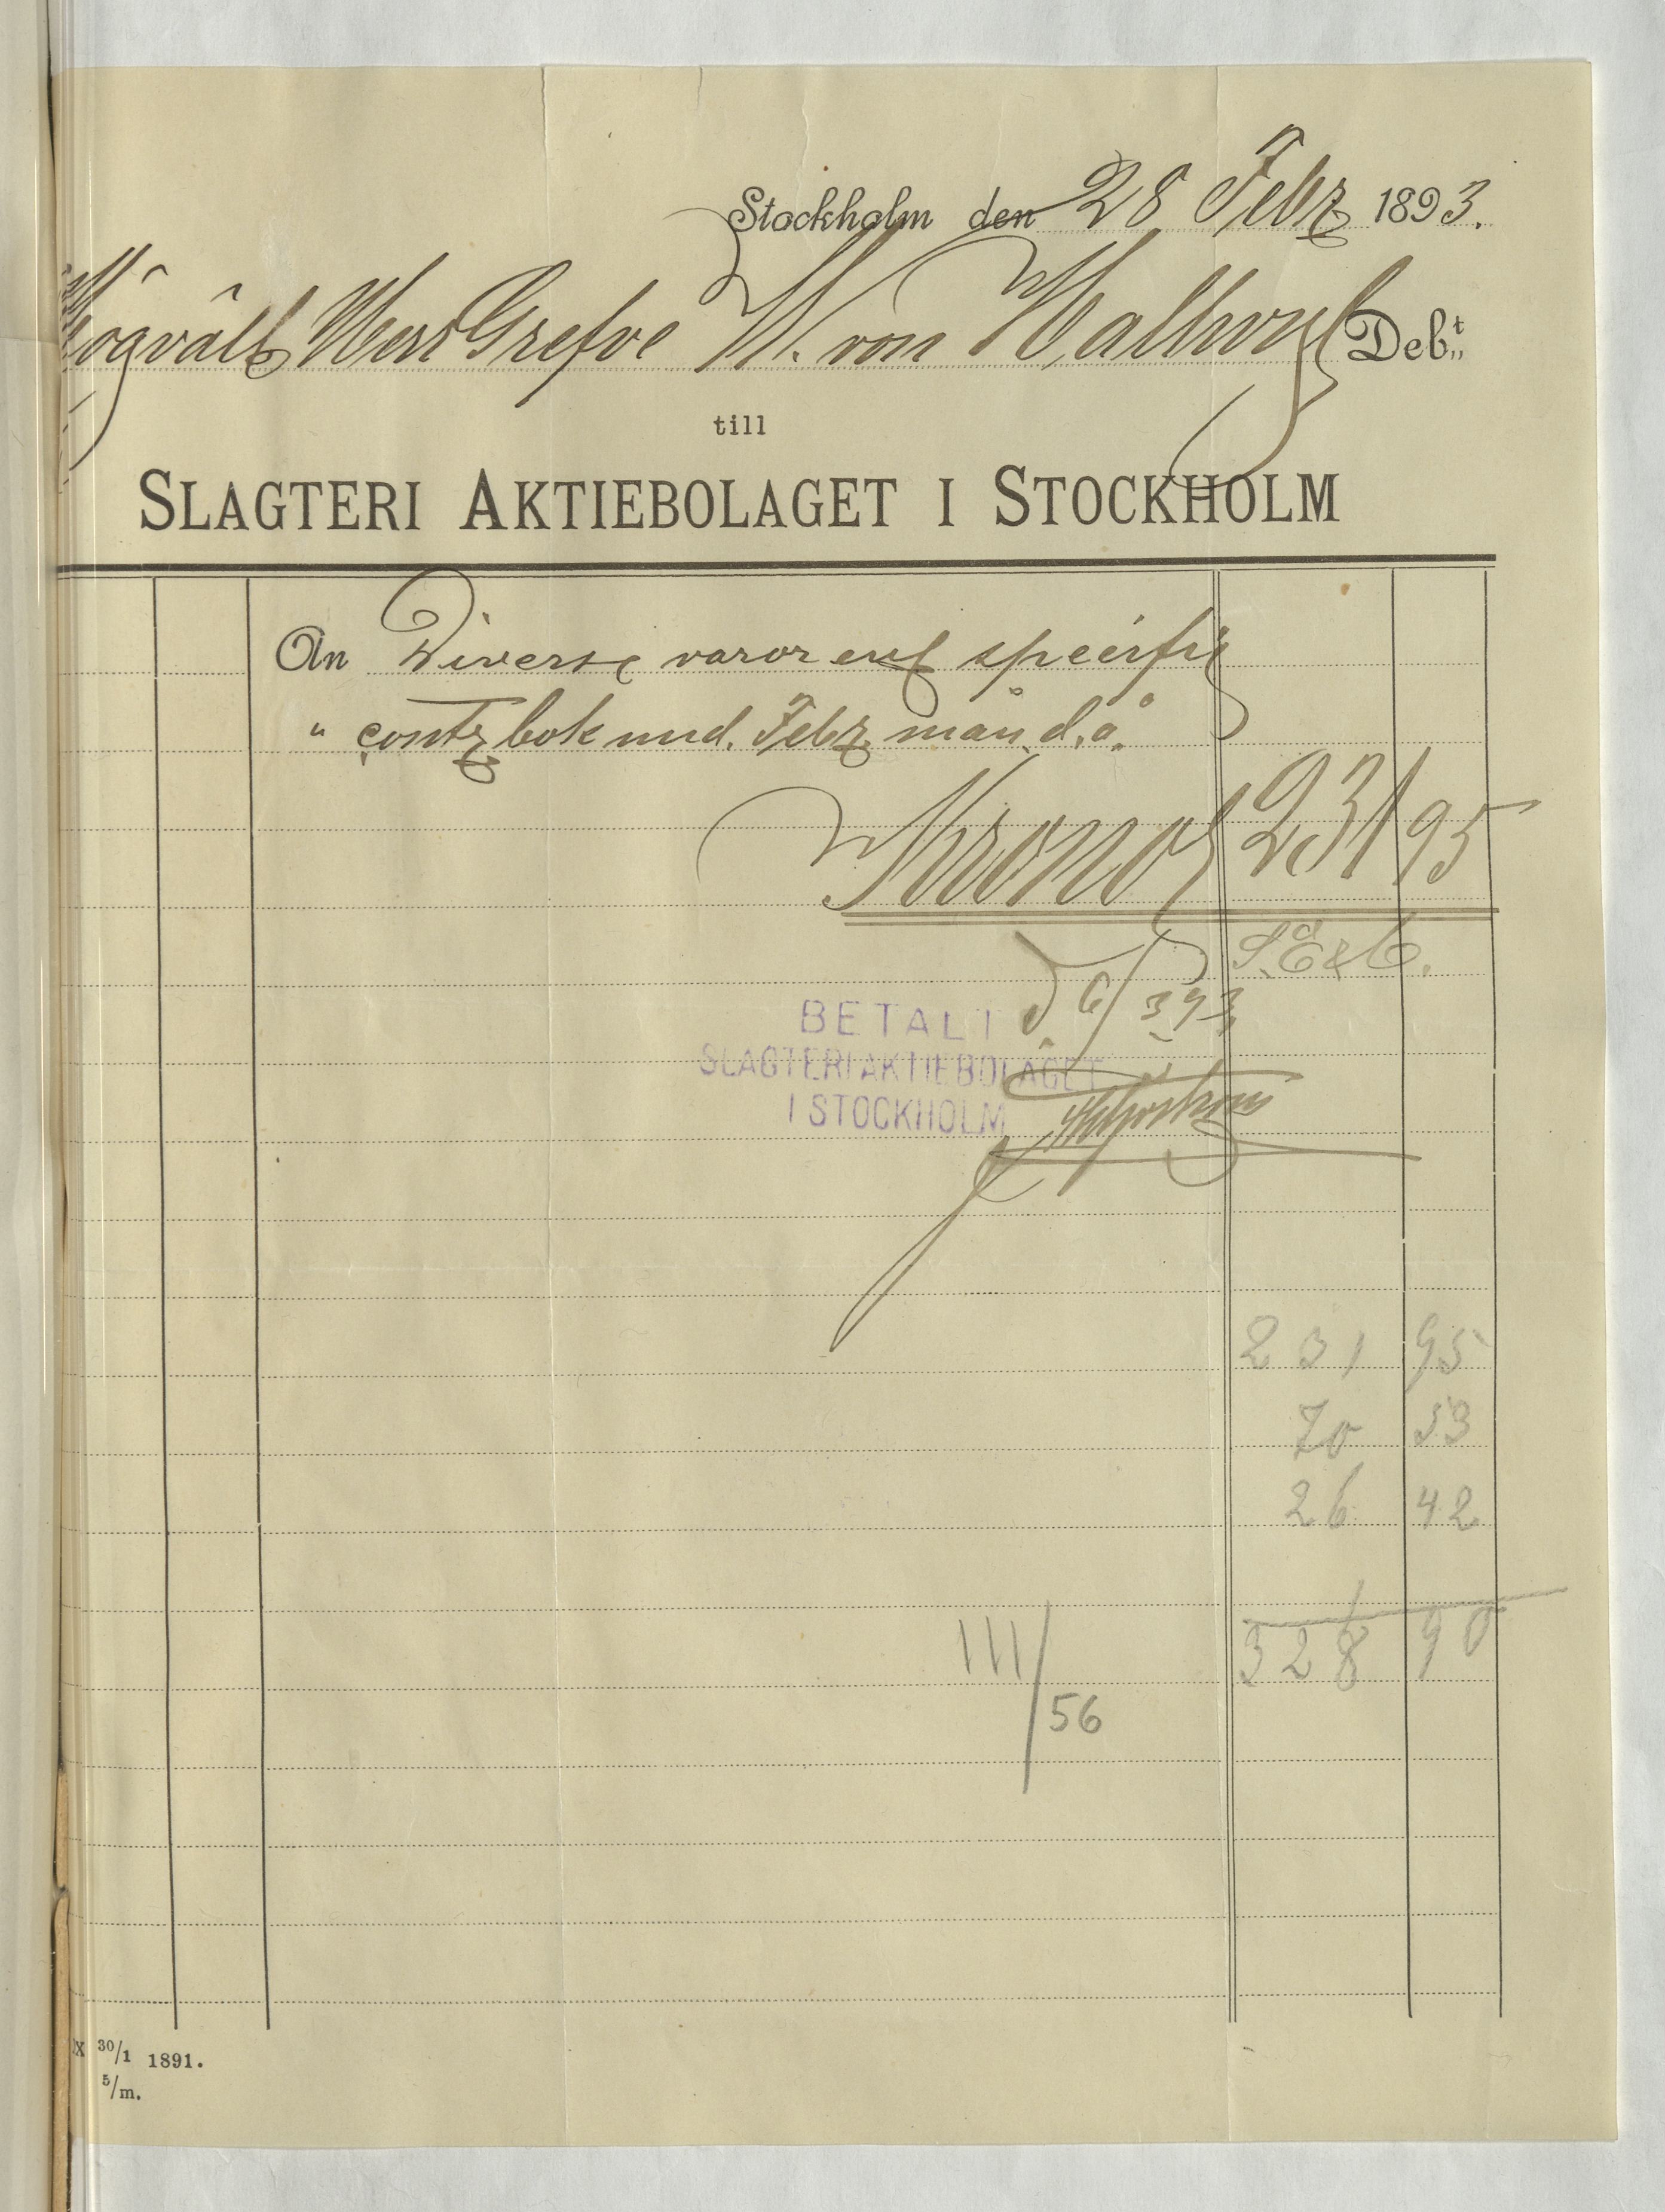 Stockholm den 28 Febr 1893.
Högvälb Herr Grefve W. von Hallwyl Deb:t
till
SLAGTERI AKTIEBOLAGET I STOCKHOLM
An Diverse varor enl specifik
" contr bok und. Febr mån. d.å.
Kronor 231 95
S.E&O.
d 6/3 93
BETALT
SLAGTERIAKTIEBOLAGET
I STOCKHOLM
231 95
70 53
26 42
328 90
111/56
X 30/1 1891.
5/m.